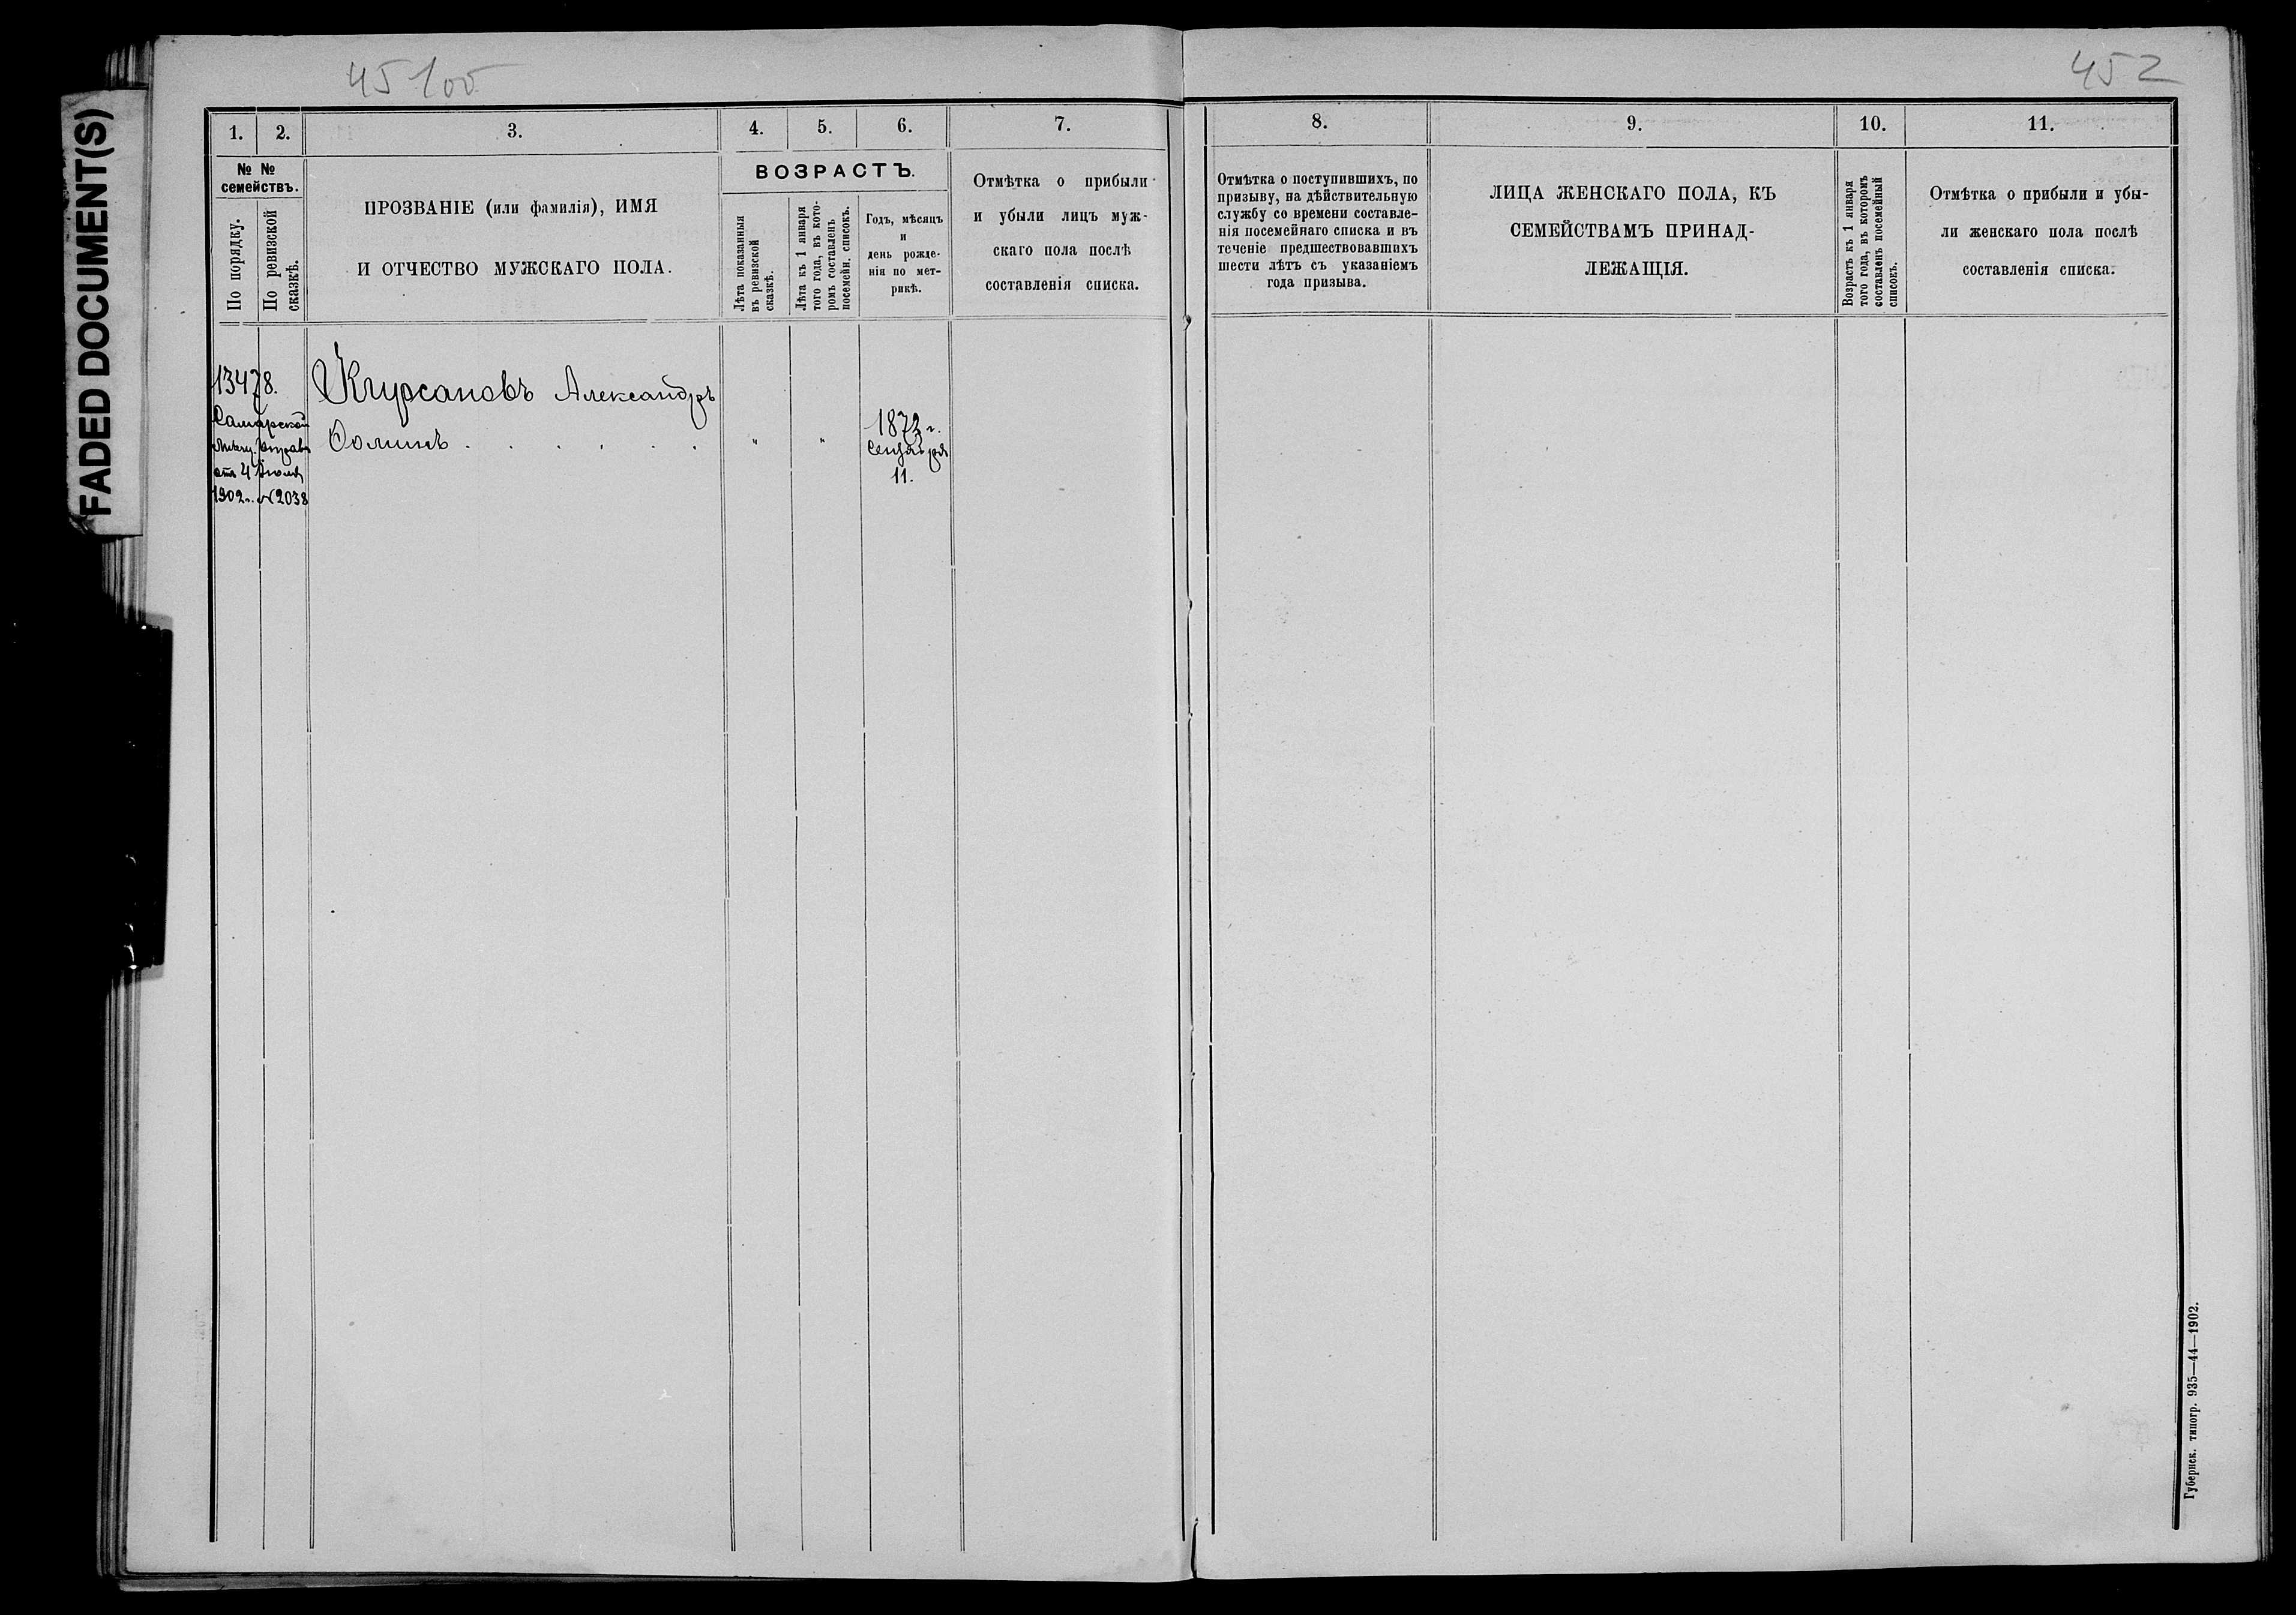 45 100
452
FADED DOCUMENT(S)
1. 2. 3. 4. 5. 6. 7.
№ №
семействъ.
По порядку.
По ревизской
сказкѣ.
ПРОЗВАНІЕ (или фамилія), ИМЯ
И ОТЧЕСТВО МУЖСКАГО ПОЛА.
ВОЗРАСТЪ.
Лѣта показанныя
въ ревизской
сказкѣ.
Лѣта къ 1 января
того года, въ кото-
ромъ составленъ
посемейн. списокъ.
Годъ, мѣсяцъ
и
день рожде-
нія по мет-
рикѣ.
Отмѣтка о прибыли
и убыли лицъ муж-
скаго пола послѣ
составленія списка.
13478.
Самарской
Управы
отъ 4 Іюля
1902 г. № 2038
Курсановъ Александръ
Ѳоминъ . . . . . .
" "
1873 г.
Сентября
11.
8. 9. 10. 11.
Отмѣтка о поступившихъ, по
призыву, на дѣйствительную
службу со времени составле-
нія посемейнаго списка и въ
теченіе предшествовавшихъ
шести лѣтъ съ указаніемъ
года призыва.
ЛИЦА ЖЕНСКАГО ПОЛА, КЪ
СЕМЕЙСТВАМЪ ПРИНАД-
ЛЕЖАЩІЯ.
Возрастъ къ 1 января
того года, въ которомъ
составленъ посемейный
списокъ.
Отмѣтка о прибыли и убы-
ли женскаго пола послѣ
составленія списка.
Губернск. типогр. 935—44—1902.